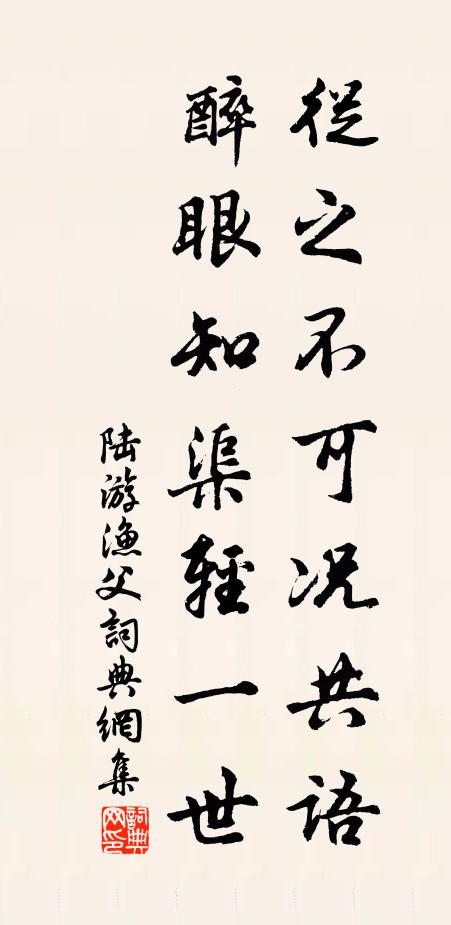 從之不可况共語
醉眼知渠輕一世
陆游漁父詞典網集
詞典網印